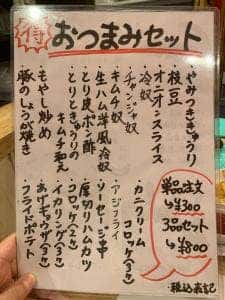 得 おつまみセット
・やみつききゅうり
・枝豆
・オニオンスライス
・冷奴
・チャンジャ奴
・キムチ奴
・生ハム洋風冷奴
・とり皮ポン酢
・とりときゅうりの
キムチ和え
・もやし炒め
・豚のしょうが焼き
・カニクリーム
コロッケ(2コ)
・アジフライ
・ソーセージ串
・厚切りハムカツ
・コロッケ(2コ)
・イカリング(5コ)
・あげギョウザ(5コ)
・フライドポテト
単品注文
↳¥300
3品セット
↳¥800
・税込表記